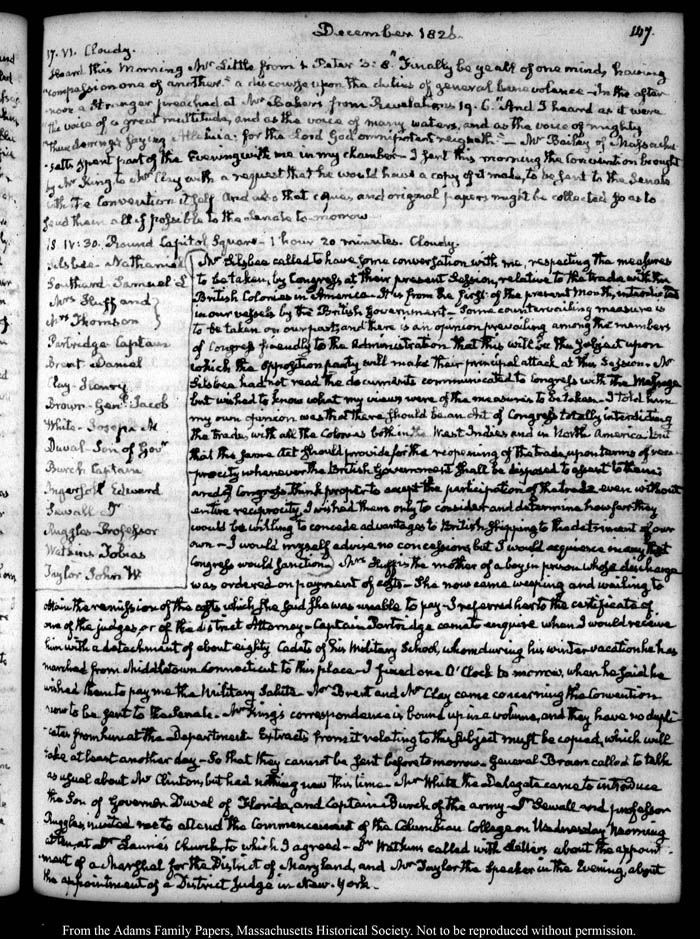 December 1826.
147.
17. VI. Cloudy.
Heard this Morning Mr Little from 1 Peter 3: 8. "Finally be ye all of one mind, having
"compassion one of another." a discourse upon the duties of general benevolence — In the after-
noon a Stranger preached at Mr Bakers from Revelations 19. 6. "And I heard as it were
the voice of a great multitude, and as the voice of many waters, and as the voice of mighty
Thunderings saying Alleluia: for the Lord God omnipotent reigneth" — Mr Bailey of Massachu-
-setts spent part of the Evening with me in my chamber — I sent this morning the Convention brought
by Mr King to Mr Clay with a request that he would have a copy of it made, to be sent to the Senate
with the Convention itself. And also that copies and original papers might be collected so as to
send them all if possible to the Senate to-morrow
18. IV: 30. Round Capitol Square — 1 hour 20 minutes. Cloudy.
Silsbee — Nathaniel
Southard Samuel L
Mrs Huff and
Mrs Thomson
Partridge Captain
Brent Daniel
Clay — Henry
Brown — Genl Jacob
White — Joseph M
Duval — Son of Govr
Burch Captain
Ingersoll Edward
Sewall Dr
Ruggles — Professor
Watkins Tobias
Taylor John W.
Mr Silsbee called to have some conversation with me, respecting the measures
to be taken, by Congress at their present Session, relative to the trade with the
British Colonies in America — It is from the first of the present Month, interdicted
in our vessels by the British Government — Some countervailing measure is
to be taken on our part, and there is an opinion prevailing among the members
of Congress friendly to the Administration that this will be the subject upon
which the opposition party will make their principal attack at this Session. Mr
Silsbee had not read the documents communicated to Congress with the Message
but wished to know what my views were of the measures to be taken — I told him
my own opinion was that there should be an Act of Congress totally interdicting
the trade, with all the Colonies both in the West Indies and in North America — but
that the same Act should provide for the reopening of the trade, upon terms of reci-
procity whenever the British Government shall be disposed to assent to them:
and if Congress think proper to accept the participation of the trade even without
entire reciprocity, I wished them only to consider and determine how far they
would be willing to concede advantages to British shipping to the detriment of our
own — I would myself advise no concession, but I would acquiesce in any that
Congress would sanction. Mrs Huff is the mother of a boy in prison whose discharge
was ordered on payment of costs — She now came weeping and wailing to
obtain the remission of the costs which she said she was unable to pay — I referred her to the certificate of
one of the judges, or of the district Attorney — Captain Partridge came to enquire when I would receive
him with a detachment of about eighty Cadets of his Military School, whom during his winter vacation he has
marched from Middletown Connecticut to this place — I fixed one O'Clock to morrow, when he said he
wished them to pay me the Military Salute — Mr Brent and Mr Clay came concerning the Convention
now to be sent to the Senate. Mr King's correspondence is bound up in a volume, and they have no dupli-
-cates from him at the Department. Extracts from it relating to this subject must be copied, which will
take at least another day — So that they cannot be sent before tomorrow. General Brown called to talk
as usual about Mr Clinton, but had nothing new this time. Mr White the Delegate came to introduce
the Son of Governor Duval of Florida, and Captain Burch of the army — Dr Sewall and professor
Ruggles, invited me to attend the Commencement of the Columbian College on Wednesday Morning
at ten, at Dr Laurie's Church, to which I agreed — Dr Watkins called with Letters about the appoint-
-ment of a Marshal for the District of Maryland, and Mr Taylor the Speaker in the Evening, about
the appointment of a District Judge in New-York.
From the Adams Family Papers, Massachusetts Historical Society. Not to be reproduced without permission.